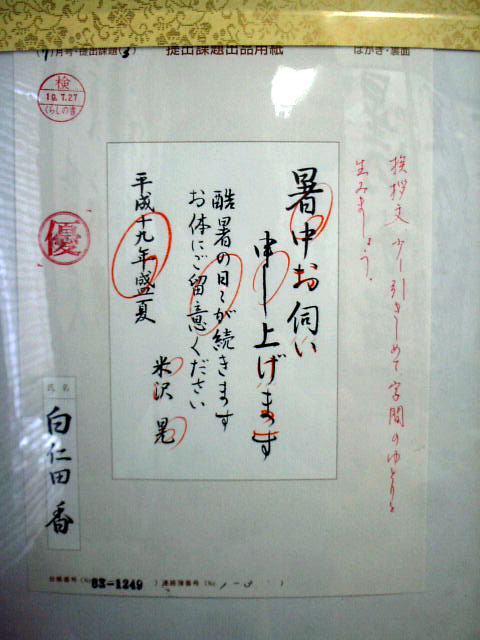 月号・提出課題(3)
提出課題出品用紙
はがき・裏面
検
19.7.27
くらしの書
挨拶文少し引きしめて、字間のゆとりを
生みましょう。
暑中お伺い
申し上げます
酷暑の日々が続きます
お体にご留意ください
平成十九年盛夏
米沢 晃
優
氏名
白仁田 香
(No 63-1249 )
(No 1-3 )